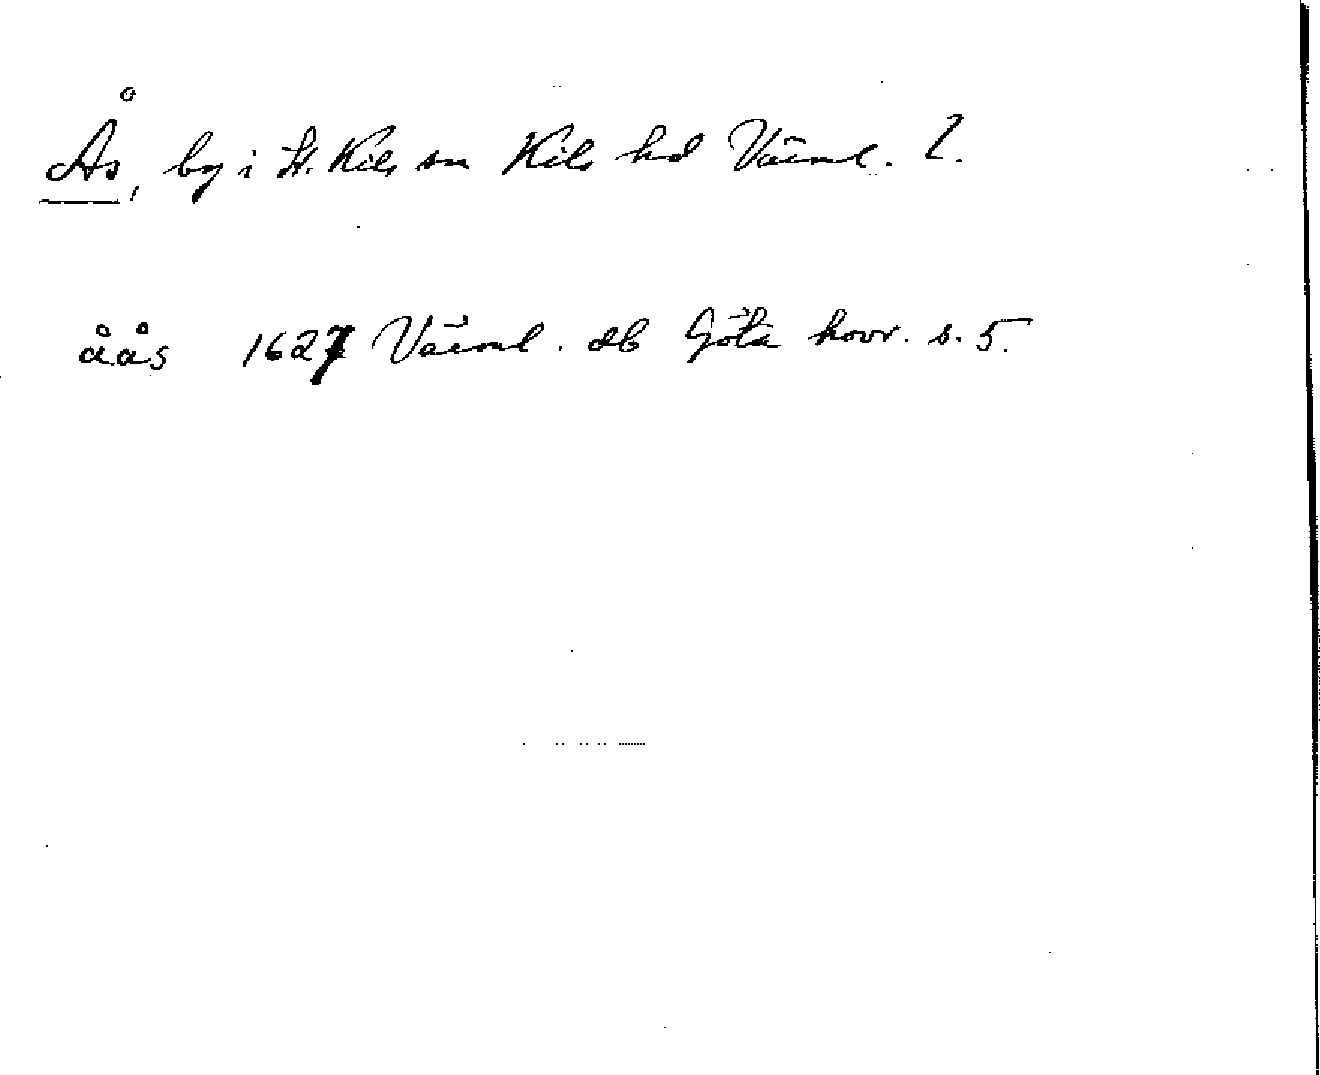 Ås, by i St. Kils sn Kils hd Värml. l.
åås 1627 Värml. db Göta hovr. s. 5.